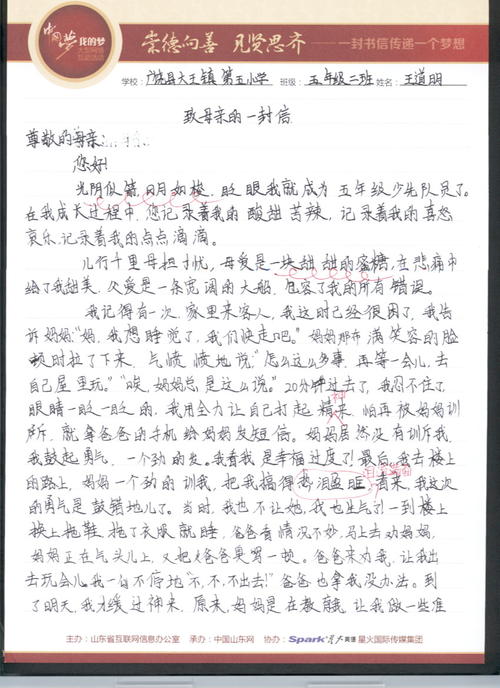 中国梦 我的梦
大型网络
互动活动
崇德向善 见贤思齐 —— 一封书信传递一个梦想
学校:广饶县大王镇第五小学 班级:五年级二班 姓名:王道明
致母亲的一封信
尊敬的母亲:
您好!
光阴似箭,日月如梭,眨眼我就成为五年级少先队员了。
在我成长过程中,您记录着我的酸甜苦辣,记录着我的喜怒
哀乐,记录着我的点点滴滴。
儿行千里母担扰,母爱是一块甜甜的蜜糖,在悲痛中
给了我甜美,父爱是一条宽阔的大船,包容了我的所有错误。
我记得有一次,家里来客人,我这时已经很困了,我告
诉妈妈:“妈,我想睡觉了,我们快走吧。”妈妈那布满笑容的脸
顿时拉了下来,气愤愤地说:“怎么这么多事,再等一会儿,去
自己屋里玩。”“唉,妈妈总是这么说。”20分钟过去了,我忍不住了
眼睛一眨一眨的,我用全力让自己打起精来,怕再被妈妈训
神
斥,就拿爸爸的手机给妈妈发短信。妈妈居然没有训斥我,
我鼓起勇气,一个劲的发。我看我是幸福过度了!最后,我去楼上
的路上,妈妈一个劲的训我,把我搞得泪眶着来,我这次
的勇气是鼓错地儿了。当时,我也不让她,我也生气!一到楼上
换上拖鞋,拖了衣服就睡,爸爸看情况不妙,马上去劝妈妈,
妈妈正在气头儿上,又把爸爸臭骂一顿。爸爸来劝我,让我出
去玩会儿,我一句不停地“不,不,不出去!”爸爸也拿我没办法。到
了明天,我才缓过神来,原来,妈妈是在教育我,让我做一些准
主办:山东省互联网信息办公室 承办:中国山东网 协办:Spark 星火英语 星火国际传媒集团